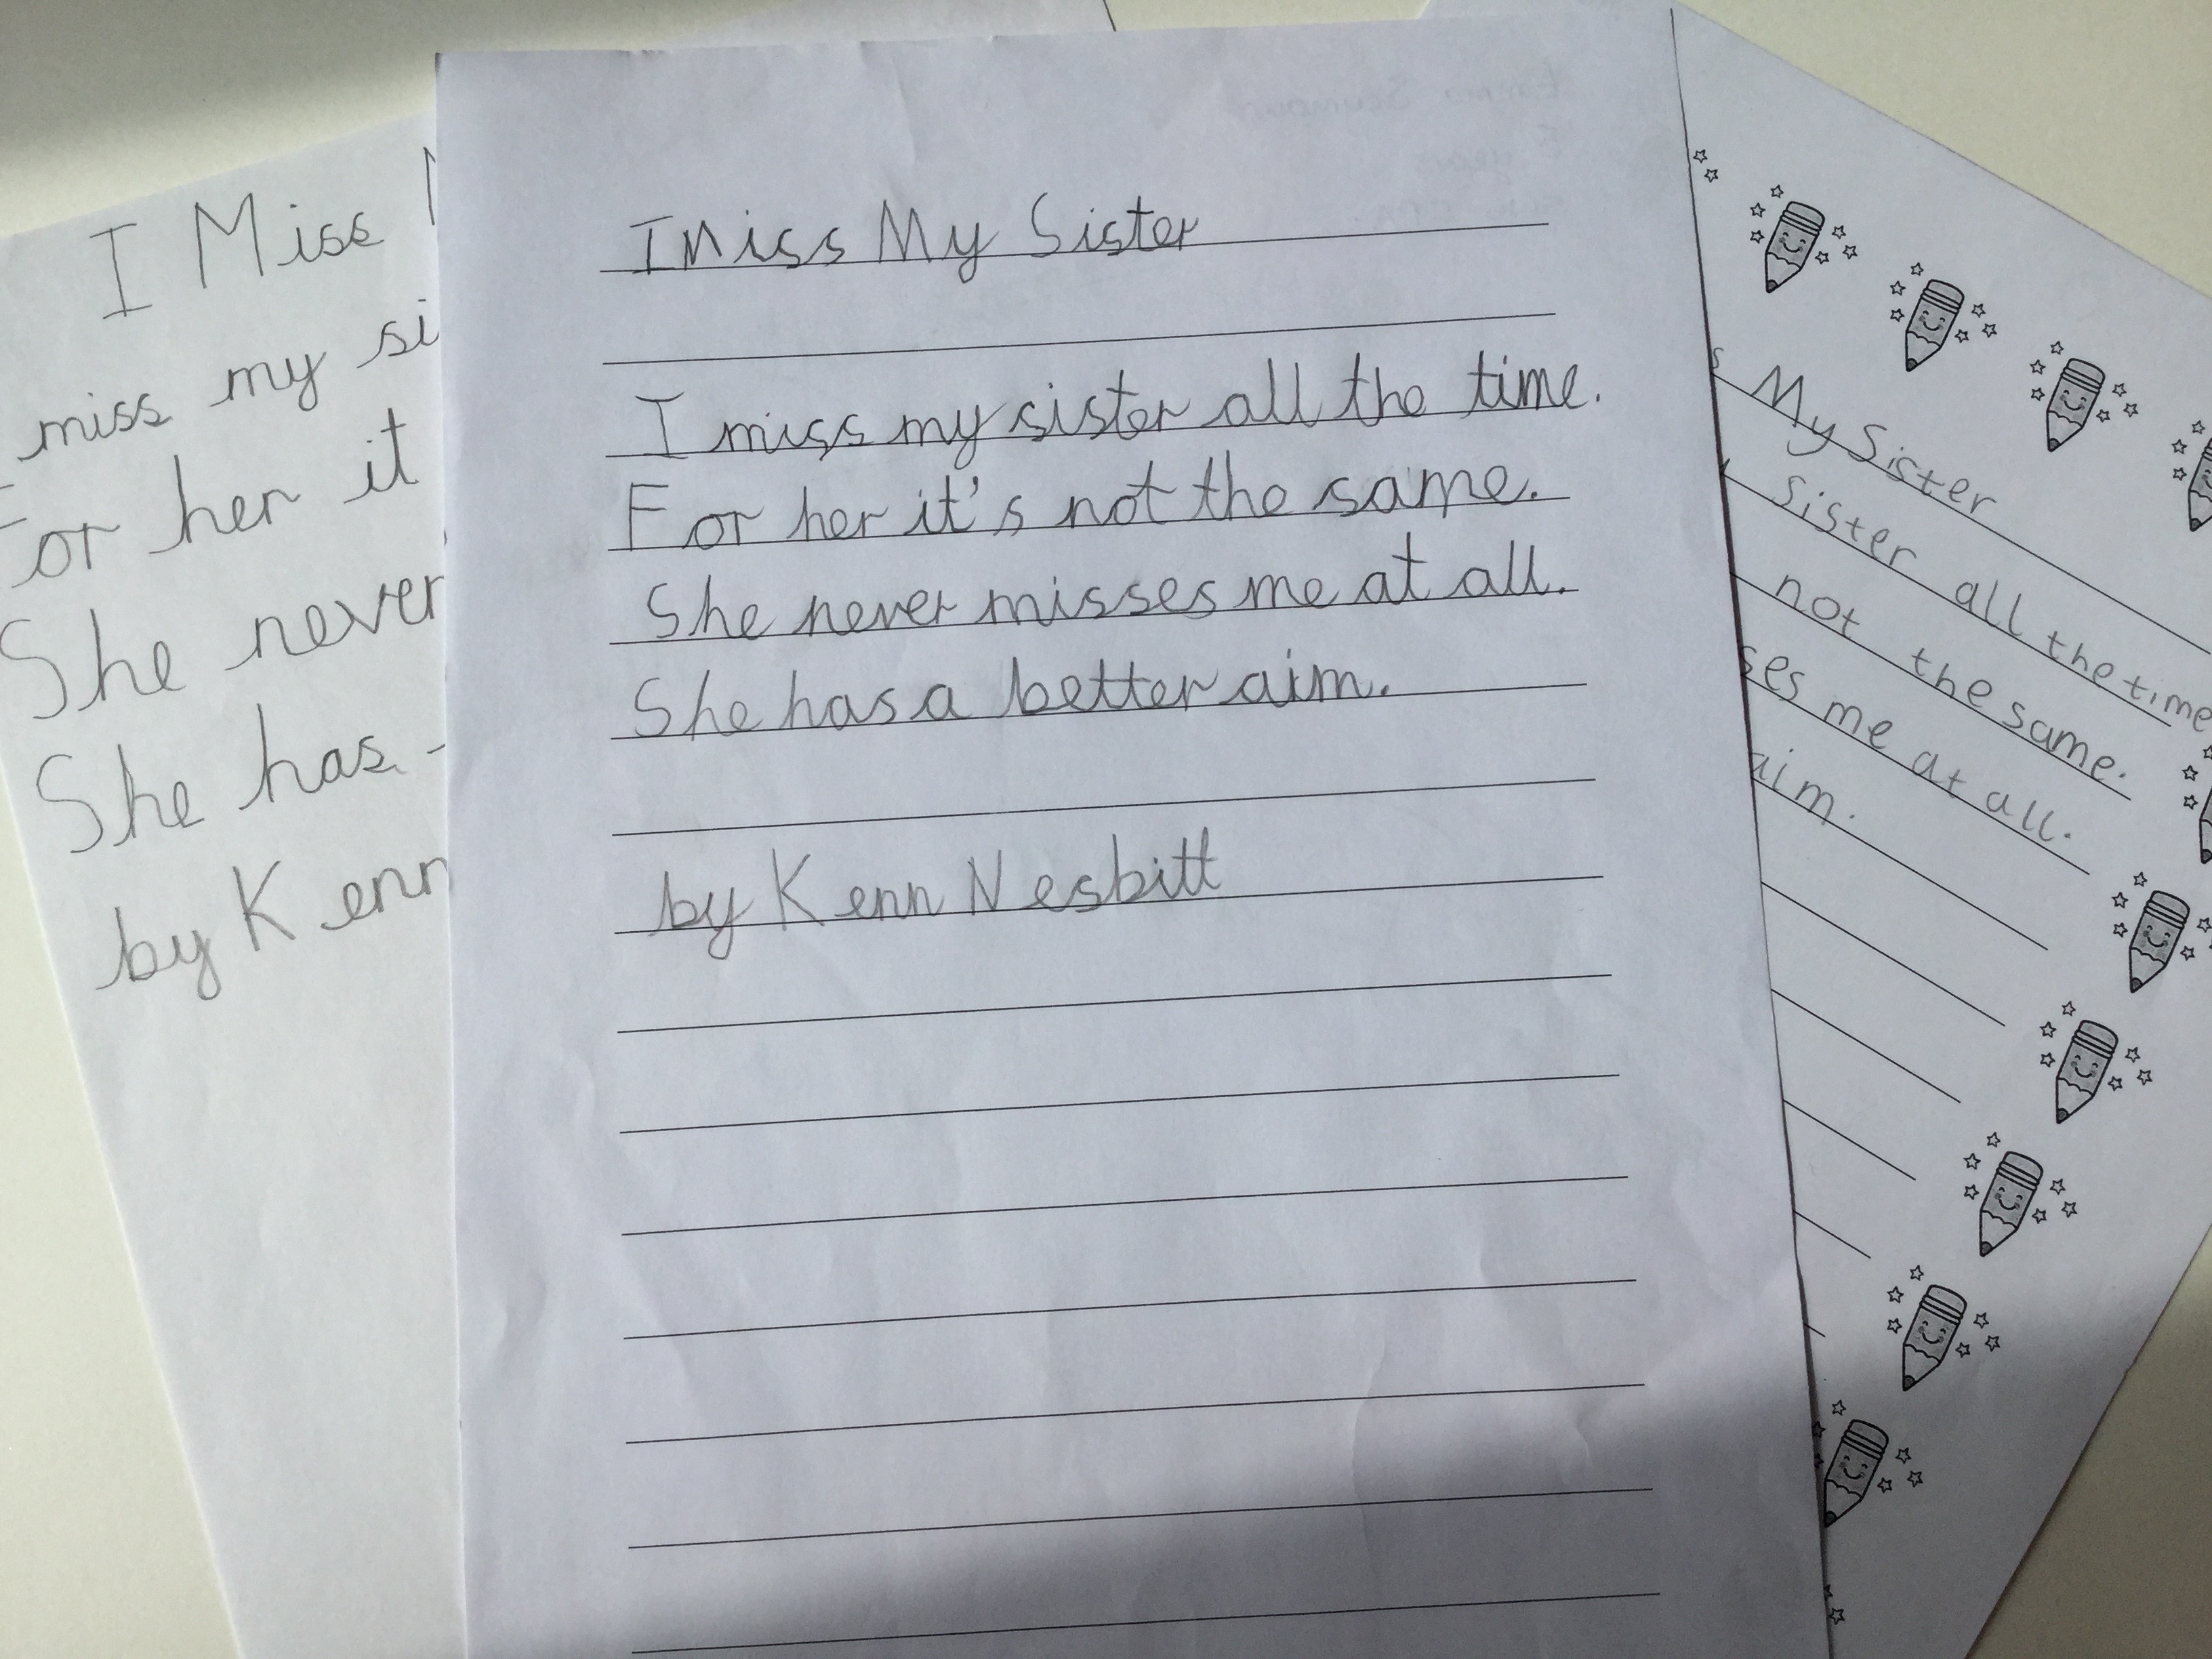 I Miss My Sister
I miss my sister all the time.
For her it's not the same.
She never misses me at all.
She has a better aim.
by Kenn Nesbitt
I Miss
miss my si
For her it
She never
She has
by Kenn
s My Sister
sister all the time
not the same.
ses me at all.
aim.